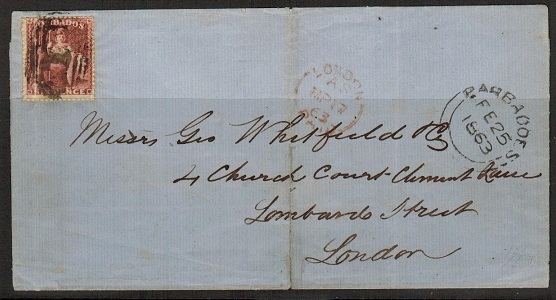 BARBADOS
PENCE
LONDON
A.S
63
BARBADOES
FE 25
1863
Messrs Geo Whitfield & Co
4 Church Court Clement Lane
Lombards Street
London